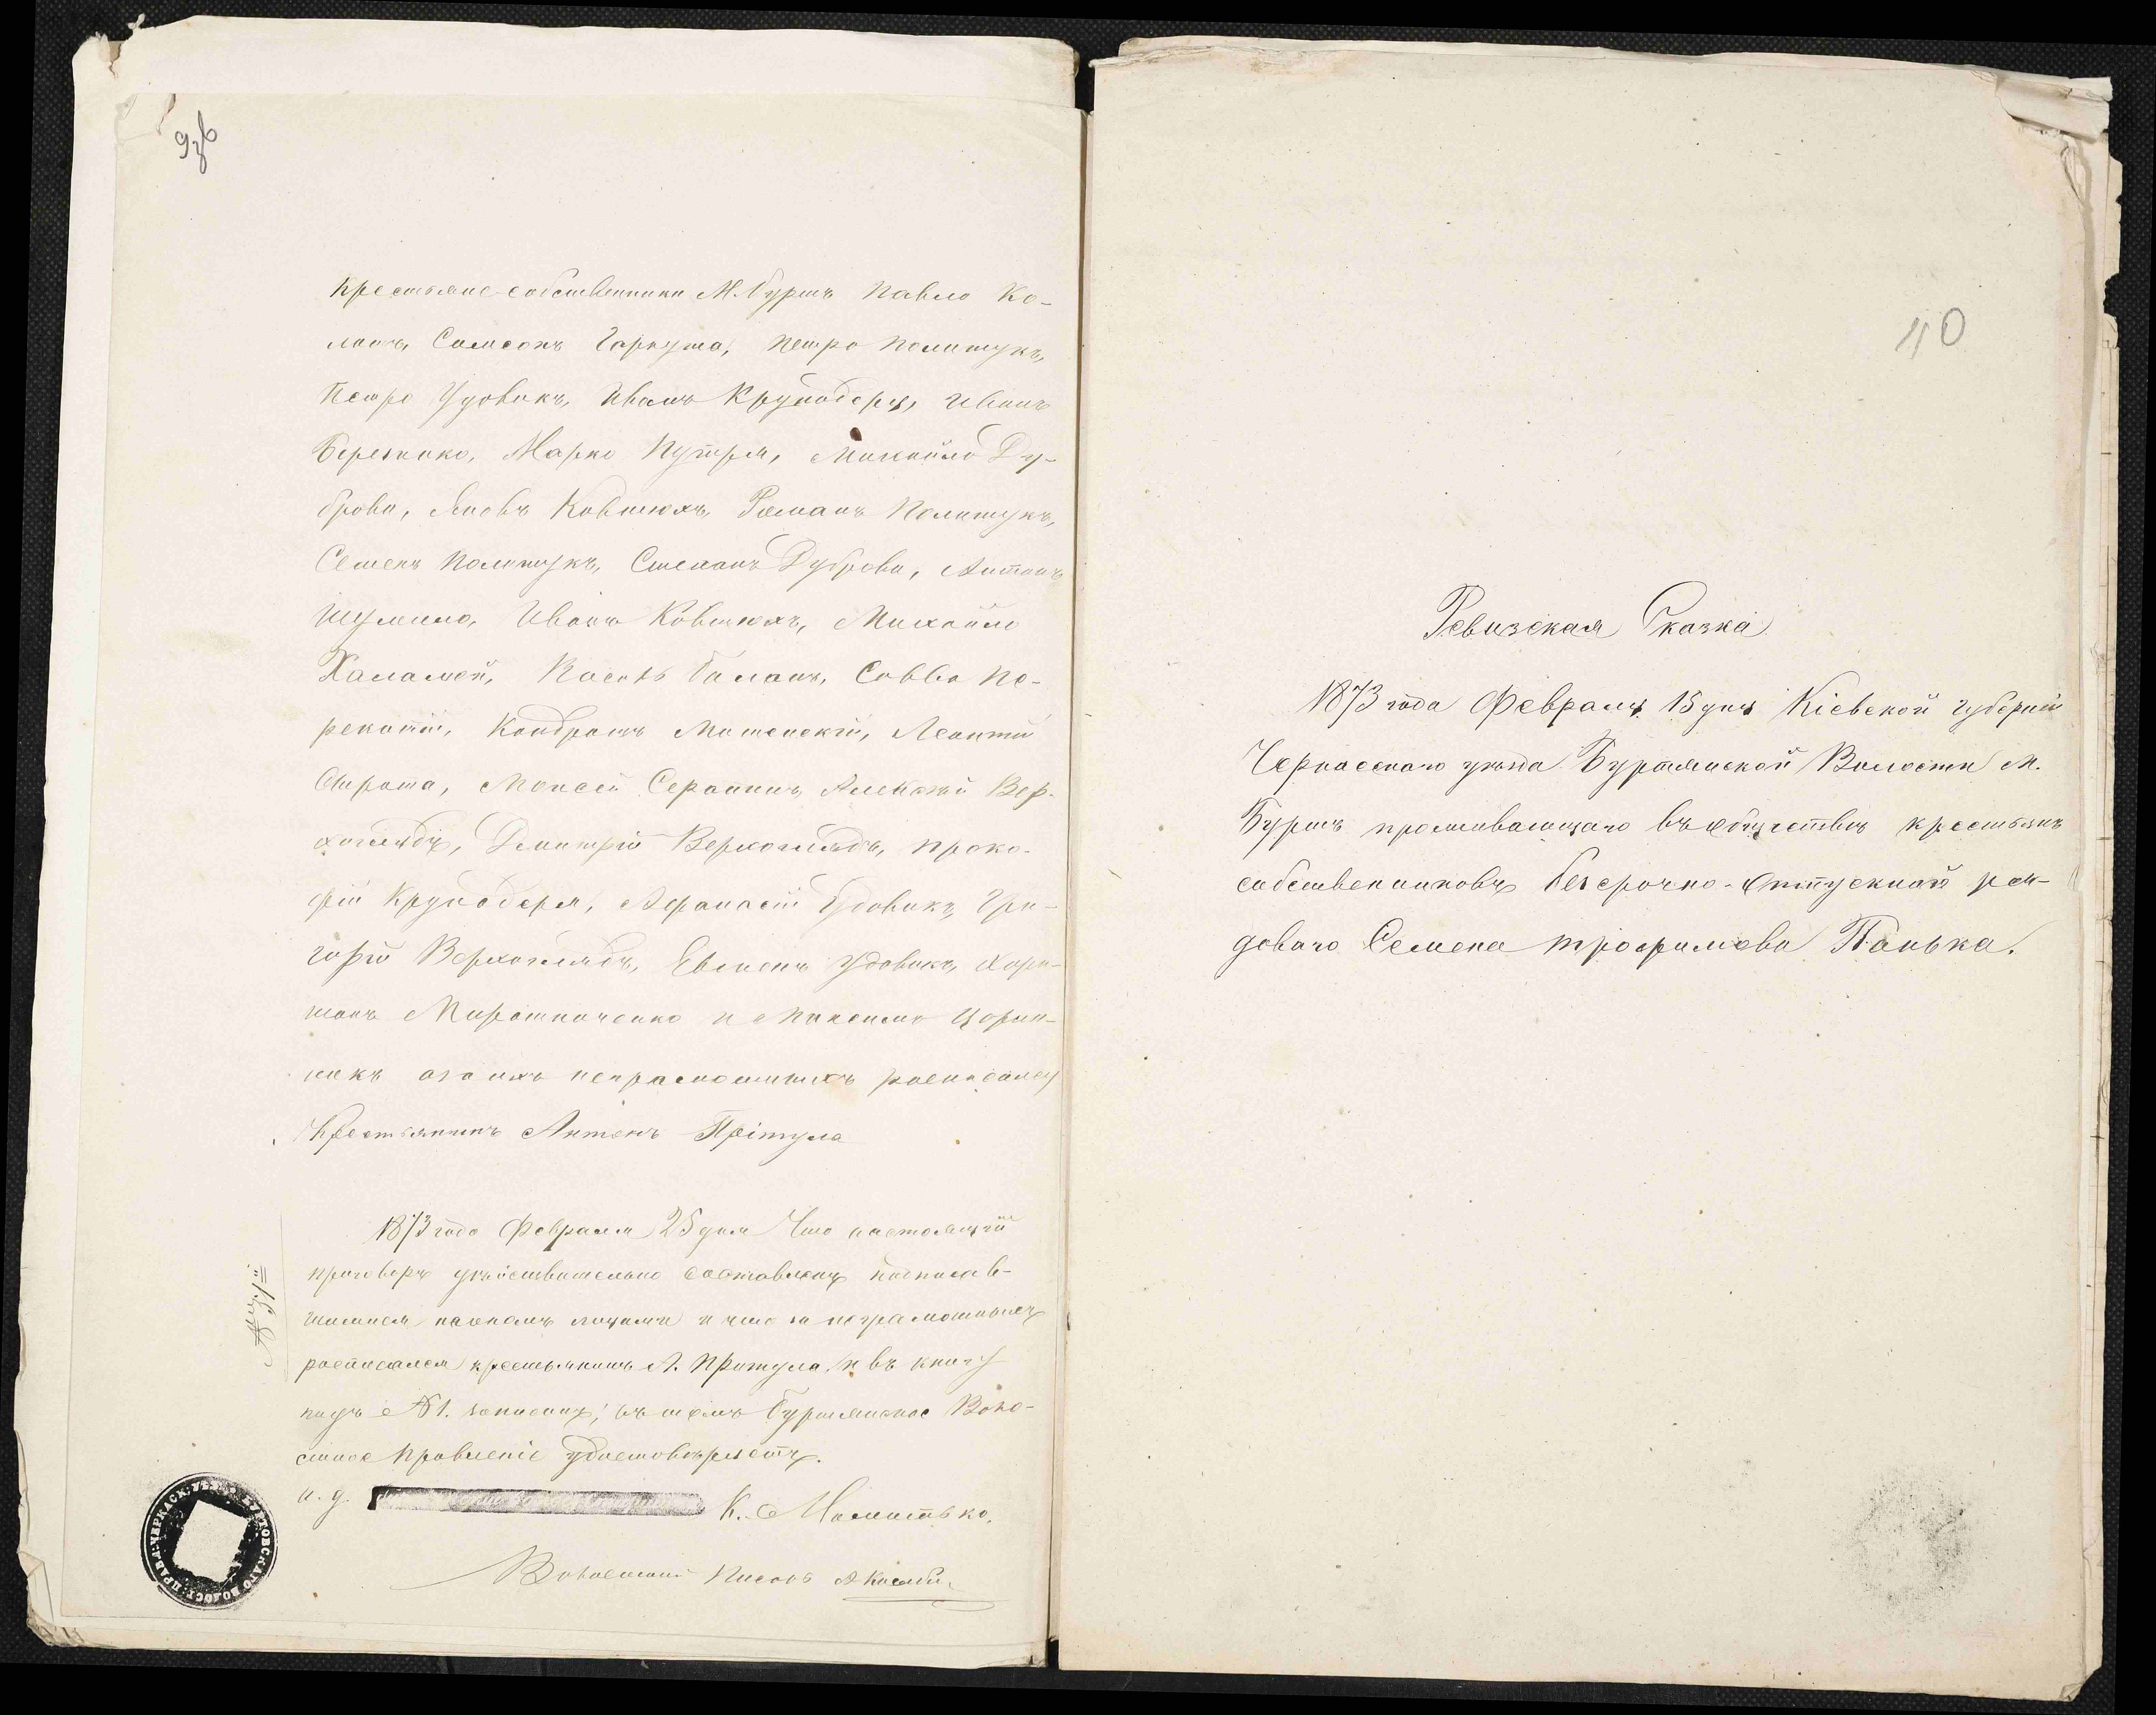 Крестьяне-собственники М. Буртъ Павло Ко-
Самсонъ Гаркуша, Петро Полищукъ,
Петро Удовикъ, Иванъ Круподеря, Иванъ
Марко Путря, Михайло Ду-
брова, Яковъ Ковтюхъ, Романъ Полищукъ,
Семенъ Полищукъ, Степанъ Дуброва, Антонъ
Шумило, Иванъ Ковтюхъ, Михайло
Халамей, Касянъ Баланъ, Савва Пе-
Кондратъ Леонтий
Сирота, Моисей Алексей Вер-
хоглядъ, Дмитрий Верхоглядъ, Проко-
фий Круподеря, Афанасий Удовикъ, Гри-
горий Верхоглядъ, Евгенъ Удовикъ, Хари-
тонъ Мирошниченко и Максимъ
а за ихъ неграмотныхъ росписался
Крестьянинъ Антонъ Прітула
1873 года Февраля 25 дня Что настоящій
приговоръ дѣйствительно составленъ
лицами и что за неграмотныхъ
росписался крестьянинъ А. Притула, и въ книгу
подъ № 1. записанъ; въ томъ Буртянское Воло-
стное Правленіе удостовѣряетъ.
и. д. К.
Волостной Писарь А
110
Ревизская Сказка
1873 года Февраля 15 дня Кіевской губерніи
Черкасскаго уѣзда Буртянской Волости М.
Буртъ проживающаго въ обществѣ крестьянъ
собственниковъ безсрочно-отпускнаго ря-
доваго Семена Трофимова Панька.